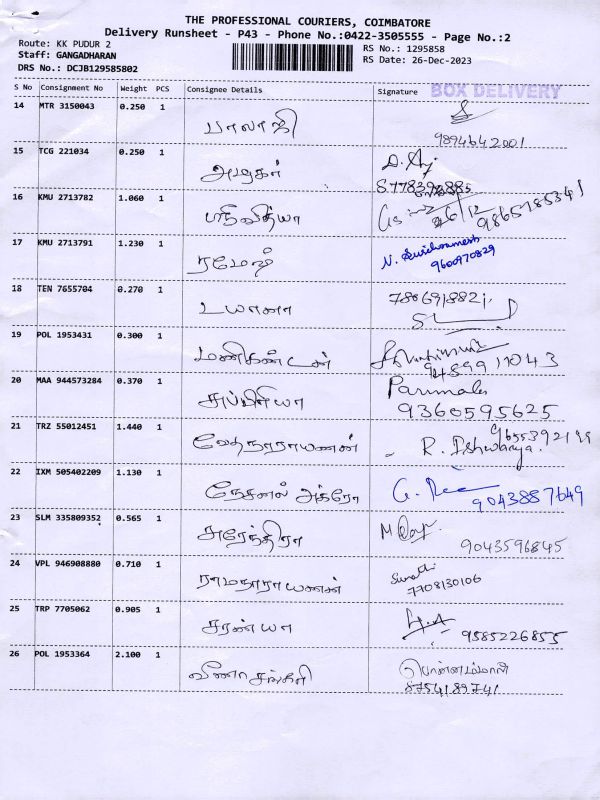 THE PROFESSIONAL COURIERS, COIMBATORE
Delivery Runsheet - P43 - Phone No.:0422-3505555 - Page No.:2
Route: KK PUDUR 2
Staff: GANGADHARAN
DRS No.: DCJB129585802
RS No.: 1295858
RS Date: 26-Dec-2023
S No Consignment No Weight PCS Consignee Details Signature BOX DELIVERY
14 MTR 3150043 0.250 1 பாலாஜி
9894642001
15 TCG 221034 0.250 1 அழகர்
16 KMU 2713782 1.060 1 ஸ்ரீவித்யா 26/12
17 KMU 2713791 1.230 1 ரமேஷ்
9600970829
18 TEN 7655704 0.270 1 டயானா
19 POL 1953431 0.300 1 மணிகண்டன்
20 MAA 944573284 0.370 1 சுப்ரியா Parimala
9360595625
21 TRZ 55012451 1.440 1 வேதநாராயணன் R. Ishwarya.
22 IXM 505402209 1.130 1 நேசனல் அக்ரோ
9043887649
23 SLM 335809352 0.565 1 சுரேந்திரா
9043596845
24 VPL 946908880 0.710 1 ராமநாராயணன்
7708130106
25 TRP 7705062 0.905 1 சரண்யா
9585226855
26 POL 1953364 2.100 1 வீணா சங்கரி பொன்னம்மாள்
8754189741